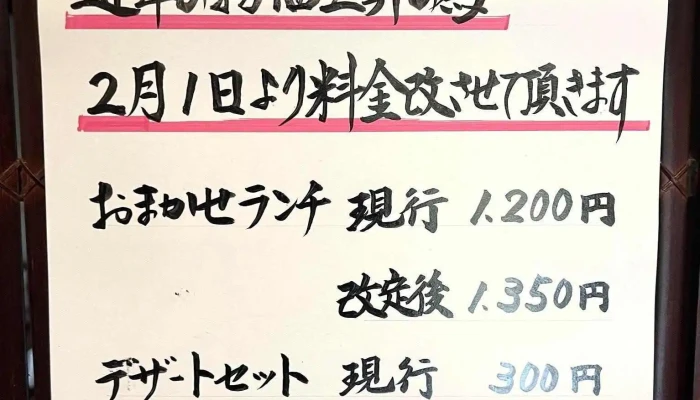 2月1日より料金改させて頂きます
おまかせランチ 現行 1.200円
改定後 1.350円
デザートセット 現行 300円